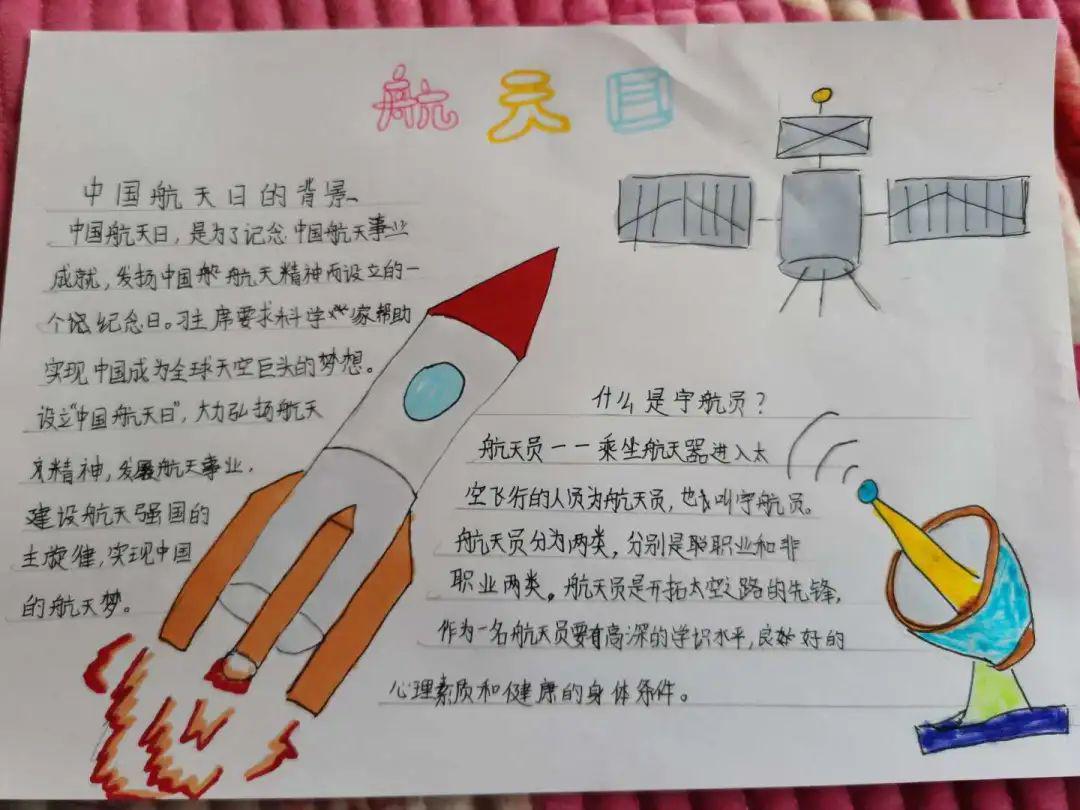 航天日
中国航天日的背景
中国航天日，是为了记念中国航天事业
成就，发扬中国航天精神而设立的一
个纪念日。习主席要求科学家帮助
实现中国成为全球天空巨头的梦想。
设立“中国航天日”，大力弘扬航天
精神，发展航天事业，
建设航天强国的
主旋律，实现中国
的航天梦。
什么是宇航员？
航天员——乘坐航天器进入太
空飞行的人员为航天员，也叫宇航员。
航天员分为两类，分别是职业和非
职业两类。航天员是开拓太空之路的先锋，
作为一名航天员要有高深的学识水平，良好的
心理素质和健康的身体条件。